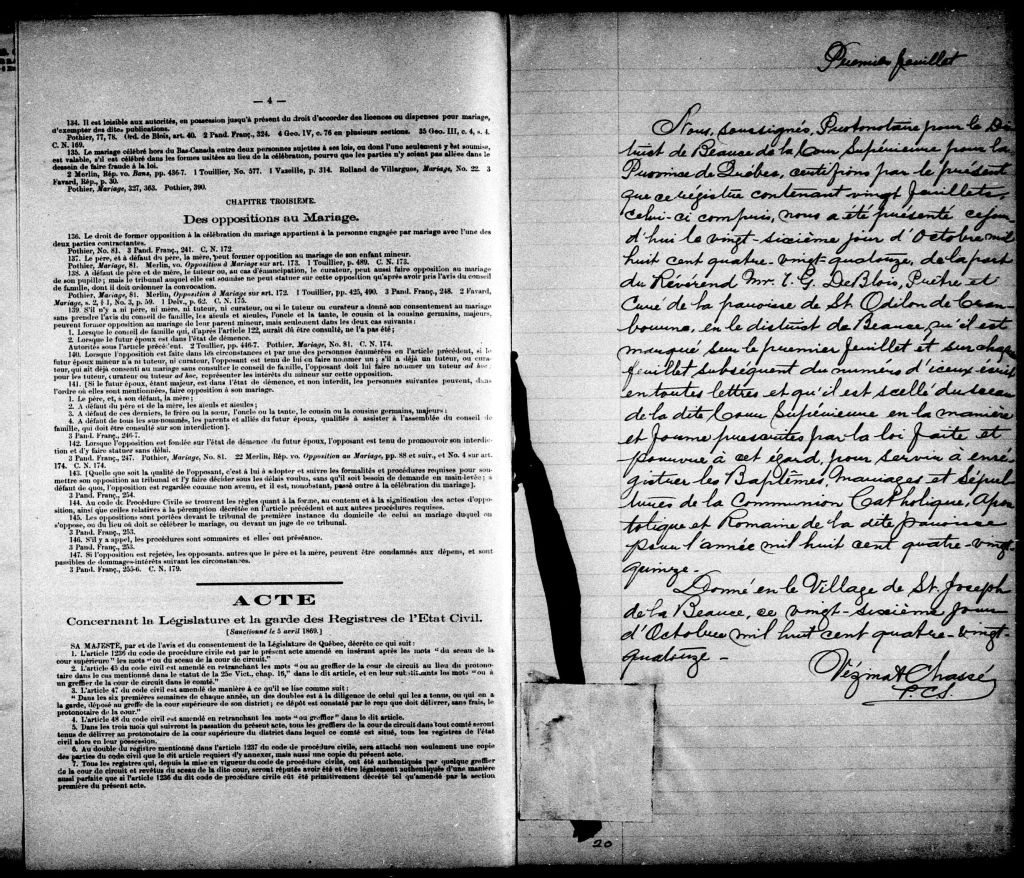 — 4 —
134. Il est loisible aux autorités, en possession jusqu'à présent du droit d'accorder des licences ou dispenses pour mariage,
d'exempter des dites publications.
Pothier, 77, 78. Ord. de Blois, art. 40. 2 Pand. Franç., 324. 4 Geo. IV, c. 76 en plusieurs sections. 35 Geo. III, c. 4, s. 4.
C. N. 169.
135. Le mariage célébré hors du Bas-Canada entre deux personnes sujettes à ses lois, ou dont l'une seulement y est soumise,
est valable, s'il est célébré dans les formes usitées au lieu de la célébration, pourvu que les parties n'y soient pas allées dans le
dessein de faire fraude à la loi.
2 Merlin, Rép. vo. Bans, pp. 436-7. 1 Touillier, No. 577. 1 Vazeille, p. 314. Rolland de Villargues, Mariage, No. 22. 3
Favard, Rép., p. 30.
Pothier, Mariage, 327, 363. Pothier, 390.
CHAPITRE TROISIÈME.
Des oppositions au Mariage.
136. Le droit de former opposition à la célébration du mariage appartient à la personne engagée par mariage avec l'une des
deux parties contractantes.
Pothier, No. 81. 3 Pand. Franç., 241. C. N. 172.
137. Le père, et à défaut du père, la mère, peut former opposition au mariage de son enfant mineur.
Pothier, Mariage, 81. Merlin, vo. Opposition à Mariage sur art. 173. 1 Touillier, p. 489. C. N. 173.
138. A défaut de père et de mère, le tuteur ou, au cas d'émancipation, le curateur, peut aussi faire opposition au mariage
de son pupille; mais le tribunal auquel elle est soumise ne peut statuer sur cette opposition qu'après avoir pris l'avis du conseil
de famille, dont il doit ordonner la convocation.
Pothier, Mariage, 81. Merlin, Opposition à Mariage sur art. 172. 1 Touillier, pp. 425, 490. 3 Pand. Franç., 248. 2 Favard,
Mariage, s. 2, § 1, No. 3, p. 59. 1 Delv., p. 62. C. N. 175.
139. S'il n'y a ni père, ni mère, ni tuteur, ni curateur, ou si le tuteur ou curateur a donné son consentement au mariage
sans prendre l'avis du conseil de famille, les aïeuls et aïeules, l'oncle et la tante, le cousin et la cousine germains, majeurs,
peuvent former opposition au mariage de leur parent mineur, mais seulement dans les deux cas suivants:
1. Lorsque le conseil de famille qui, d'après l'article 122, aurait dû être consulté, ne l'a pas été;
2. Lorsque le futur époux est dans l'état de démence.
Autorités sous l'article précédent. 2 Touillier, pp. 446-7. Pothier, Mariage, No. 81. C. N. 174.
140. Lorsque l'opposition est faite dans les circonstances et par une des personnes énumérées en l'article précédent, si le
futur époux mineur n'a ni tuteur, ni curateur, l'opposant est tenu de lui en faire nommer un; s'il a déjà un tuteur, ou curateur,
qui ait déjà consenti au mariage sans consulter le conseil de famille, l'opposant doit lui faire nommer un tuteur ad hoc;
pour les tuteur, curateur ou tuteur ad hoc, représenter les intérêts du mineur sur cette opposition.
141. [Si le futur époux, étant majeur, est dans l'état de démence, et non interdit, les personnes suivantes peuvent, dans
l'ordre où elles sont mentionnées, faire opposition à son mariage.
1. Le père, et, à son défaut, la mère;
2. A défaut du père et de la mère, les aïeuls et aïeules;
3. A défaut de ces derniers, le frère ou la sœur, l'oncle ou la tante, le cousin ou la cousine germains, majeurs;
4. A défaut de tous les sus-nommés, les parents et alliés du futur époux, qualifiés à assister à l'assemblée du conseil de
famille, qui doit être consulté sur son interdiction].
3 Pand. Franç., 246-7.
142. Lorsque l'opposition est fondée sur l'état de démence du futur époux, l'opposant est tenu de promouvoir son interdiction
et d'y faire statuer sans délai.
3 Pand. Franç., 247. Pothier, Mariage, No. 81. 22 Merlin, Rép. vo. Opposition au Mariage, pp. 88 et suiv., et No. 4 sur art.
174. C. N. 174.
143. [Quelle que soit la qualité de l'opposant, c'est à lui à adopter et suivre les formalités et procédures requises pour soumettre
son opposition au tribunal et l'y faire décider sous les délais voulus, sans qu'il soit besoin de demande en main-levée; à
défaut de quoi, l'opposition est regardée comme non avenu, et il est, nonobstant, passé outre à la célébration du mariage].
3 Pand. Franç., 254.
144. Au code de Procédure Civile se trouvent les règles quant à la forme, au contenu et à la signification des actes d'opposition,
ainsi que celles relatives à la péremption décrétée en l'article précédent et aux autres procédures requises.
145. Les oppositions sont portées devant le tribunal de première instance du domicile de celui au mariage duquel on
s'oppose, ou du lieu où doit se célébrer le mariage, ou devant un juge de ce tribunal.
3 Pand. Franç., 253.
146. S'il y a appel, les procédures sont sommaires et elles ont préséance.
3 Pand. Franç., 253.
147. Si l'opposition est rejetée, les opposants, autres que le père et la mère, peuvent être condamnés aux dépens, et sont
passibles de dommages-intérêts suivant les circonstances.
3 Pand. Franç., 255-6. C. N. 179.
ACTE
Concernant la Législature et la garde des Registres de l'Etat Civil.
[Sanctionné le 5 avril 1869.]
SA MAJESTE, par et de l'avis et du consentement de la Législature de Québec, décrète ce qui suit:
1. L'article 1236 du code de procédure civile est par le présent acte amendé en insérant après les mots "du sceau de la
cour supérieure" les mots "ou du sceau de la cour de circuit."
2. L'article 45 du code civil est amendé en retranchant les mots "ou au greffier de la cour de circuit au lieu du protonotaire
dans le cas mentionné dans le statut de la 25e Vict., chap. 16," dans le dit article, et en leur substituant les mots "ou à
un greffier de la cour de circuit dans le comté."
3. L'article 47 du code civil est amendé de manière à ce qu'il se lise comme suit:
"Dans les six premières semaines de chaque année, un des doubles est à la diligence de celui qui les a tenus, ou qui en a
la garde, déposé au greffe de la cour supérieure de son district; ce dépôt est constaté par le reçu que doit délivrer, sans frais, le
protonotaire de la cour."
4. L'article 48 du code civil est amendé en retranchant les mots "ou greffier" dans le dit article.
5. Dans les trois mois qui suivront la passation du présent acte, tous les greffiers de la cour de circuit dans tout comté seront
tenus de délivrer au protonotaire de la cour supérieure du district dans lequel ce comté est situé, tous les registres de l'état
civil alors en leur possession.
6. Au double du régistre mentionné dans l'article 1237 du code de procédure civile, sera attaché non seulement une copie
des parties du code civil que le dit article requiert d'y annexer, mais aussi une copie du présent acte.
7. Tous les registres qui, depuis la mise en vigueur du code de procédure civile, ont été authentiqués par quelque greffier
de la cour de circuit et revêtus du sceau de la dite cour, seront réputés avoir été et être légalement authentiqués d'une manière
aussi parfaite que si l'article 1236 du dit code de procédure civile eût été primitivement décrété tel qu'amendé par la section
première du présent acte.
Premier feuillet
Nous, soussignés, Protonotaire pour le Dis
trict de Beauce de la Cour Supérieure pour la
Province de Québec, certifions par le présent
que ce régistre contenant vingt feuillets,
celui-ci compris, nous a été présenté ce jour
d'hui le vingt-sixième jour d'Octobre mil
huit cent quatre-vingt-quatorze, de la part
du Révérend Mr. G. DeBlois, Prêtre et
Curé de la paroisse de St Odilon de Cran-
bourne, en le district de Beauce, qu'il est
marqué sur le premier feuillet et sur chaque
feuillet subséquent du numéro d'iceux écrit
en toutes lettres et qu'il est scellé du sceau
de la dite Cour Supérieure en la manière
et forme prescrites par la loi faite et
pourvue à cet égard, pour servir à enré-
gistrer les Baptêmes, Mariages et Sépul-
tures de la Communion Catholique, Apos
tolique et Romaine de la dite paroisse
pour l'année mil huit cent quatre-vingt
quinze.
Donné en le Village de St. Joseph
de la Beauce, ce vingt-sixième jour
d'Octobre mil huit cent quatre-vingt-
quatorze -
Vézina & Chasse
P.C.S.
20